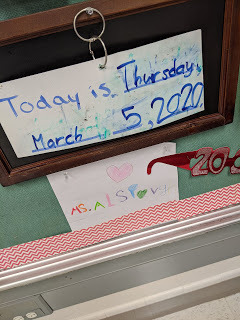 Today is Thursday,
March 5, 2020
MS. ALSTO
20